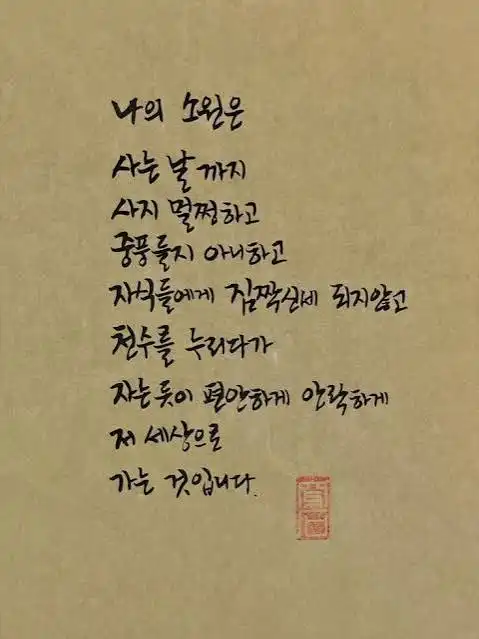 나의 소원은
사는 날 까지
사지 멀쩡하고
중풍들지 아니하고
자식들에게 짐짝신세 되지않고
천수를 누리다가
자는듯이 편안하게 안락하게
저 세상으로
가는 것입니다.